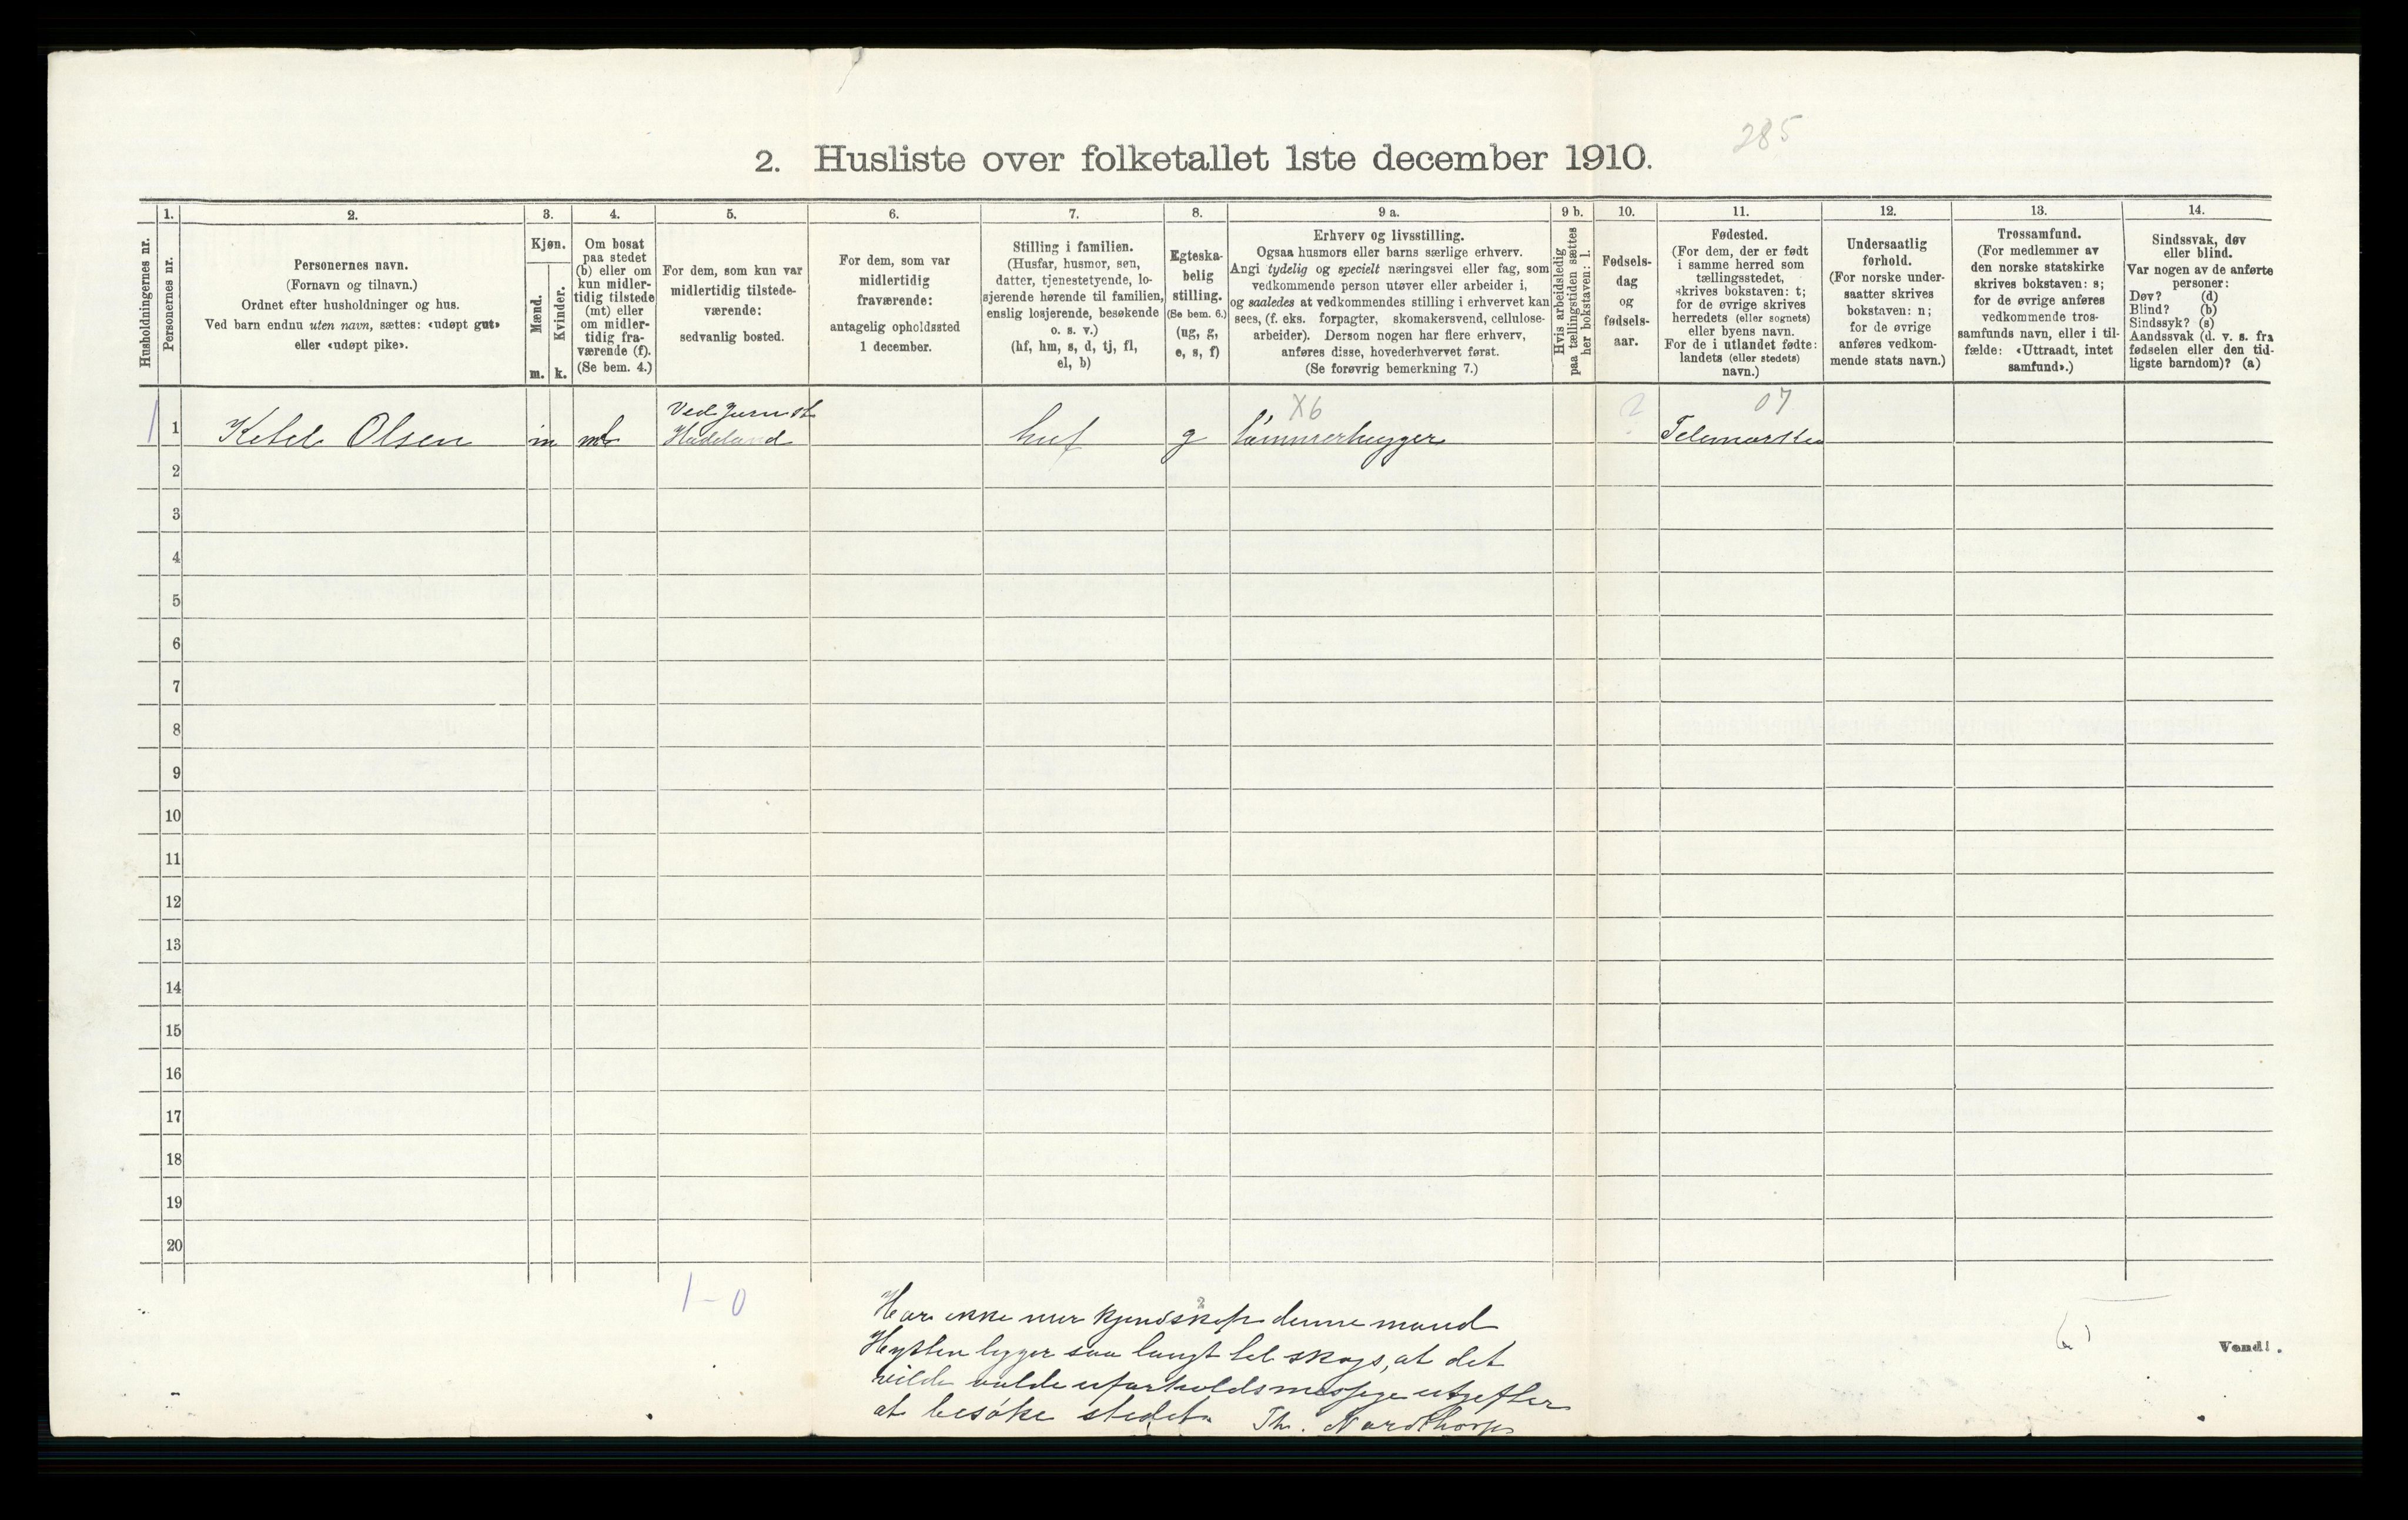 285
2. Husliste over folketallet 1ste december 1910.
Husholdningernes nr.
1.
Personernes nr.
2.
Personernes navn.
(Fornavn og tilnavn.)
Ordnet efter husholdninger og hus.
Ved barn endnu uten navn, sættes: «udøpt gut»
eller «udøpt pike».
3.
Kjøn.
Mænd.
Kvinder.
m. k.
4.
Om bosat
paa stedet
(b) eller om
kun midler-
tidig tilstede
(mt) eller
om midler-
tidig fra-
værende (f).
(Se bem. 4.)
5.
For dem, som kun var
midlertidig tilstede-
værende:
sedvanlig bosted.
6.
For dem, som var
midlertidig
fraværende:
antagelig opholdssted
1 december.
7.
Stilling i familien.
(Husfar, husmor, søn,
datter, tjenestetyende, lo-
sjerende hørende til familien,
enslig losjerende, besøkende
o. s. v.)
(hf, hm, s, d, tj, fl,
el, b)
8.
Egteska-
belig
stilling.
(Se bem. 6.)
(ug, g,
e, s, f)
9 a.
Erhverv og livsstilling.
Ogsaa husmors eller barns særlige erhverv.
Angi tydelig og specielt næringsvei eller fag, som
vedkommende person utøver eller arbeider i,
og saaledes at vedkommendes stilling i erhvervet kan
sees, (f. eks. forpagter, skomakersvend, cellulose-
arbeider). Dersom nogen har flere erhverv,
anføres disse, hovederhvervet først.
(Se forøvrig bemerkning 7.)
9 b.
Hvis arbeidsledig
paa tællingstiden sættes
her bokstaven: l.
10.
Fødsels-
dag
og
fødsels-
aar.
11.
Fødested.
(For dem, der er født
i samme herred som
tællingsstedet,
skrives bokstaven: t;
for de øvrige skrives
herredets (eller sognets)
eller byens navn.
For de i utlandet fødte:
landets (eller stedets)
navn.)
12.
Undersaatlig
forhold.
(For norske under-
saatter skrives
bokstaven: n;
for de øvrige
anføres vedkom-
mende stats navn.)
13.
Trossamfund.
(For medlemmer av
den norske statskirke
skrives bokstaven: s;
for de øvrige anføres
vedkommende tros-
samfunds navn, eller i til-
fælde: «Uttraadt, intet
samfund».)
14.
Sindssvak, døv
eller blind.
Var nogen av de anførte
personer:
Døv? (d)
Blind? (b)
Sindssyk? (s)
Aandssvak (d. v. s. fra
fødselen eller den tid-
ligste barndom)? (a)
Ved X6 ? 07
1 1 Ketel Olsen m mt Hadeland huf g tømmerhugger Telemarken
2
3
4
5
6
7
8
9
10
11
12
13
14
15
16
17
18
19
20
1 - 0
2
Har ikke mer kjendskap denne mand
Hytten ligger saa langt tel skogs, at det
vilde volde uforholdsmessige utgefter
at besøke stedet. Th. Nordthorp
Vend!